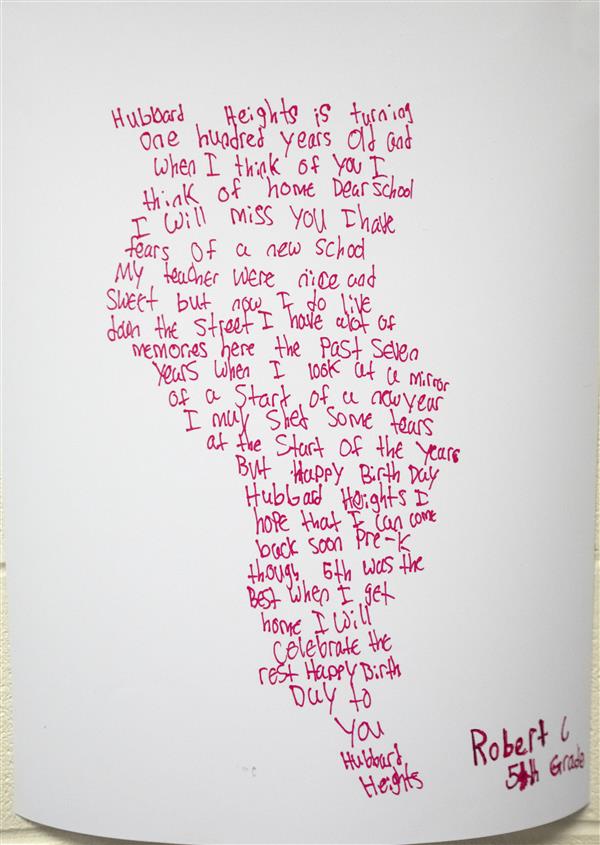 Hubbard Heights is turning
One hundred years Old and
when I think of you I
think of home Dear School
I will miss you I have
fears of a new school
My teacher were nice and
sweet but now I do live
down the street I have alot of
memories here the past seven
years when I look at a mirror
of a start of a new year
I may shed some tears
at the start of the years
But Happy Birth Day
Hubbard Heights I
hope that I can come
back soon Pre-K
though 5th was the
Best when I get
home I will
celebrate the
rest Happy Birth
Day to
you
Hubbard
Heights
Robert C
5th Grade